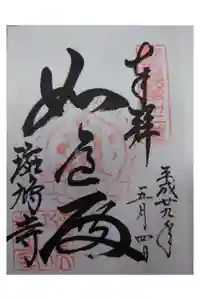 奉拝
平成廿九年
五月四日
如意殿
斑鳩寺